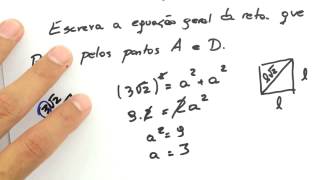 Escreva a equação geral da reta que
pelos pontos A e D.
(3√2)² = a² + a²
9.2 = 2a²
a² = 9
a = 3
3√2
l√2
l
l